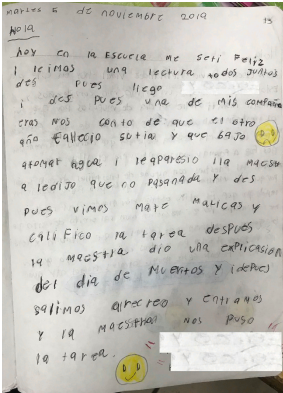 martes 5 de noviembre 2019
13
Hola
hoy en la Escuela me seti Feliz
i leimos una lectura todos juntos
des pues llego
i des pues una de mis compañe
eras nos conto de que el otro
año fallecio su tia y que bajo
atomar agua i leaparesio lla maest
a ledijo que no pasanada y des
pues vimos mate maticas y
califico la tarea despues
la maestra dio una explicasion
del dia de muertos y idepues
salimos alrecreo y entramos
y la maestra nos puso
la tarea.